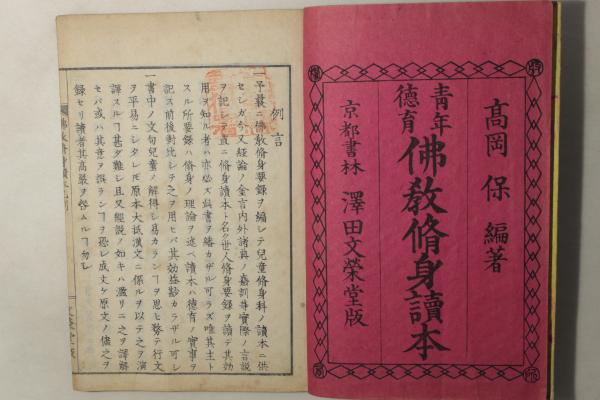 高岡保編著
青年
德育
佛教脩身讀本
京都書林 澤田文榮堂版
例言
一予曩ニ佛教脩身要録ヲ編シテ兒童脩身科ノ讀本ニ供
セシガ今又經論ノ金言内外諸典ノ嘉訓等實際ノ言説
ヲ記シテ直ニ脩身讀本ト名ク世人脩身要録ヲ讀テ其功
用ヲ知ル者ハ亦必ズ此書ヲ繙カザル可ラズ唯其主ト
スル所要録ハ脩身ノ理論ヲ述ベ讀本ハ德育ノ實事ヲ
記ス前後對比シテ之ヲ用ヒバ其効益尠カラザル可シ
一書中ノ文句兒童ノ解得シ易カランヿヲ思ヒ務テ行文
ヲ平易ニシタレモ原本大抵漢文ニ係ルヲ以テ之ヲ演
譯スルヿ甚ダ難シ且又經説ノ如キハ濫リニ之ヲ譯解
セバ或ハ其意ヲ誤ランヿヲ恐レ成丈ケ原文ノ儘之ヲ
録セリ讀者其高嚴ヲ咎ムルヿ勿レ